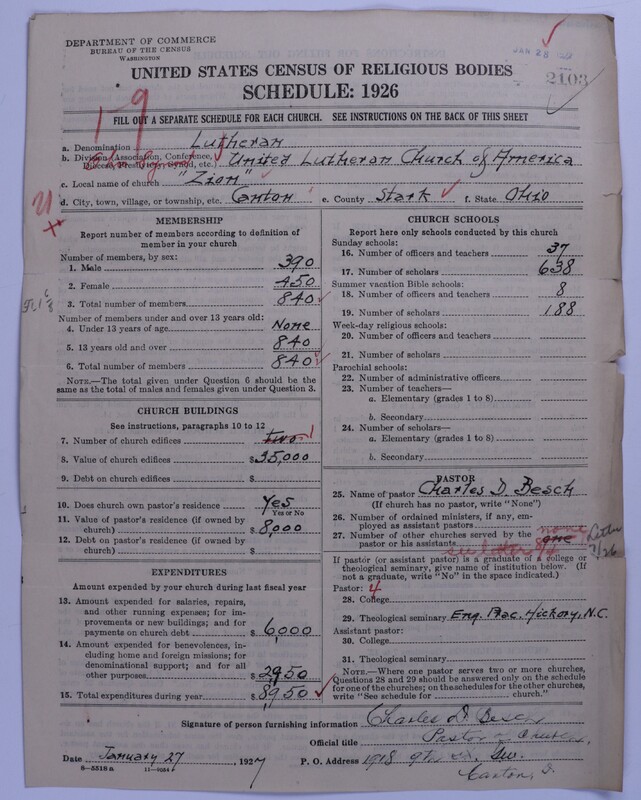 DEPARTMENT OF COMMERCE
BUREAU OF THE CENSUS
WASHINGTON
JAN 28
2103
UNITED STATES CENSUS OF RELIGIOUS BODIES
SCHEDULE: 1926
FILL OUT A SEPARATE SCHEDULE FOR EACH CHURCH. SEE INSTRUCTIONS ON THE BACK OF THIS SHEET
19
a. Denomination Lutheran
b. Division (Association, Conference, Diocese, Presbytery, Synod, etc.) United Lutheran Church of America
c. Local name of church "Zion"
d. City, town, village, or township, etc. Canton e. County Stark f. State Ohio
MEMBERSHIP
Report number of members according to definition of
member in your church
Number of members, by sex:
1. Male 390
2. Female 450
3. Total number of members 840
Number of members under and over 13 years old:
4. Under 13 years of age None
5. 13 years old and over 840
6. Total number of members 840
NOTE.—The total given under Question 6 should be
same as the total of males and females given under Question 3.
CHURCH BUILDINGS
See instructions, paragraphs 10 to 12
7. Number of church edifices two 1
8. Value of church edifices $35,000
9. Debt on church edifices $
10. Does church own pastor's residence Yes
Yes or No
11. Value of pastor's residence (if owned by
church) $8,000
12. Debt on pastor's residence (if owned by
church) $
EXPENDITURES
Amount expended by your church during last fiscal year
13. Amount expended for salaries, repairs,
and other running expenses; for im-
provements or new buildings; and for
payments on church debt $6,000
14. Amount expended for benevolences, in-
cluding home and foreign missions; for
denominational support; and for all
other purposes $2950
15. Total expenditures during year $8950
CHURCH SCHOOLS
Report here only schools conducted by this church
Sunday schools:
16. Number of officers and teachers 37
17. Number of scholars 638
Summer vacation Bible schools:
18. Number of officers and teachers 8
19. Number of scholars 188
Week-day religious schools:
20. Number of officers and teachers
21. Number of scholars
Parochial schools:
22. Number of administrative officers
23. Number of teachers—
a. Elementary (grades 1 to 8)
b. Secondary
24. Number of scholars—
a. Elementary (grades 1 to 8)
b. Secondary
PASTOR
25. Name of pastor Charles D. Besch
(If church has no pastor, write "None")
26. Number of ordained ministers, if any, em-
ployed as assistant pastors
27. Number of other churches served by the
pastor or his assistants one none Letter
If pastor (or assistant pastor) is a graduate of a college or
theological seminary, give name of institution below. (If
not a graduate, write "No" in the space indicated.)
Pastor: 4
28. College
29. Theological seminary Eng. Prac. Hickory, N.C.
Assistant pastor:
30. College
31. Theological seminary
NOTE.—Where one pastor serves two or more churches,
Questions 28 and 29 should be answered only on the schedule
for one of the churches; on the schedules for the other churches,
write "See schedule for church."
Signature of person furnishing information Charles D. Besch
Official title Pastor of Church
Date January 27, 1927 P. O. Address 1918 9th St. SW.
Canton, O.
8—5518a 11—9034